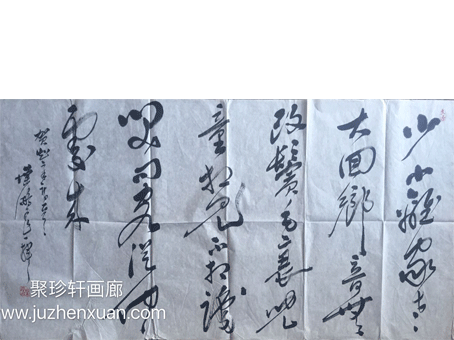 少小離家老
大回鄉音無
改鬢毛衰兒
童相見不相識
笑問客從何
處來
賀知章
聚珍轩画廊
www.juzhenxuan.com